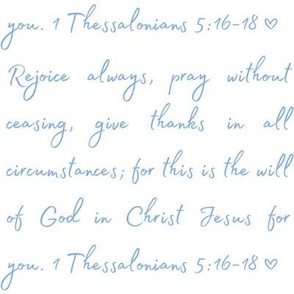 you. 1 Thessalonians 5:16-18 ♡
Rejoice always, pray without
ceasing, give thanks in all
circumstances; for this is the will
of God in Christ Jesus for
you. 1 Thessalonians 5:16-18 ♡